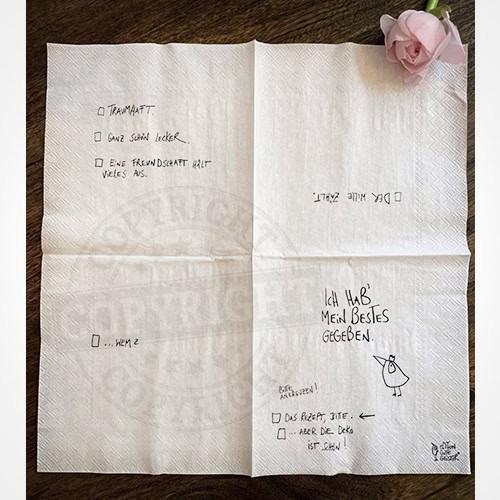 TRAUMHAFT.
GANZ SCHÖN LECKER.
EINE FREUNDSCHAFT HÄLT
VIELES AUS.
DER WILLE ZÄHLT.
ICH HAB'
MEIN BESTES
GEGEBEN.
...WEM?
BITTE
ANKREUZEN!
DAS REZEPT, BITTE. ←
... ABER DIE DEKO
IST SCHÖN!
EDITION
GUTE
GEISTER
COPYRIGHT
COPYRIGHT